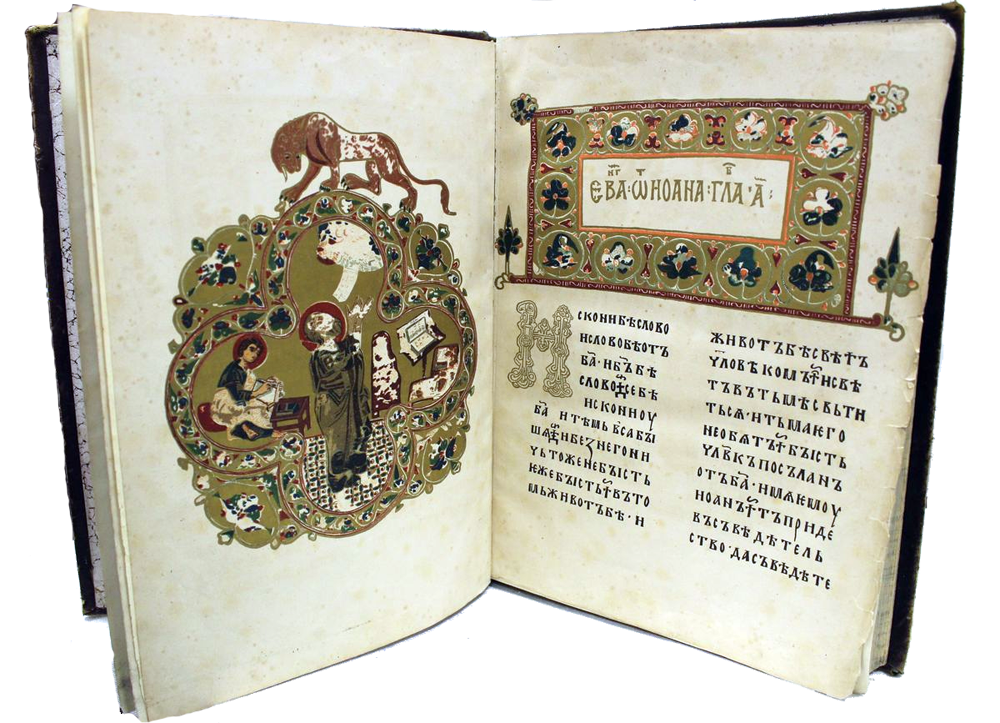 ЕВА·ѾИОАНА·ГЛА·А҃·
ИСКОНИБѢСЛОВО
ИСЛОВОБѢОТЪ
БА҃·ИБЪ҃БѢ
СЛОВО
ИСКОНИОУ
БА҃ИТѢМЬВЬСАБЫ
ШѦИБЕЗНЕГОНИ
ЧЬТОЖЕНЕБЫСТЬ
ѤЖЕБЫСТЬВЪТО
МЬЖИВОТЪБѢ·И
ЖИВОТЪБѢСВѢТЪ
ЧЛОВѢКОМЪИСВѢ
ТЪВЪТЬМѢСВЬТИ
ТЬСѦ·ИТЬМАѤГО
НЕОБѦТЪБЫСТЬ
ЧЛ҃ВКЪПОСЪЛАНЪ
ОТЪБА҃·ИМѦѤМОУ
ИОАНЪТЪПРИДЕ
ВЪСЪВѢДѢТЕЛЬ
СТВО·ДАСЪВѢДѢТЕ